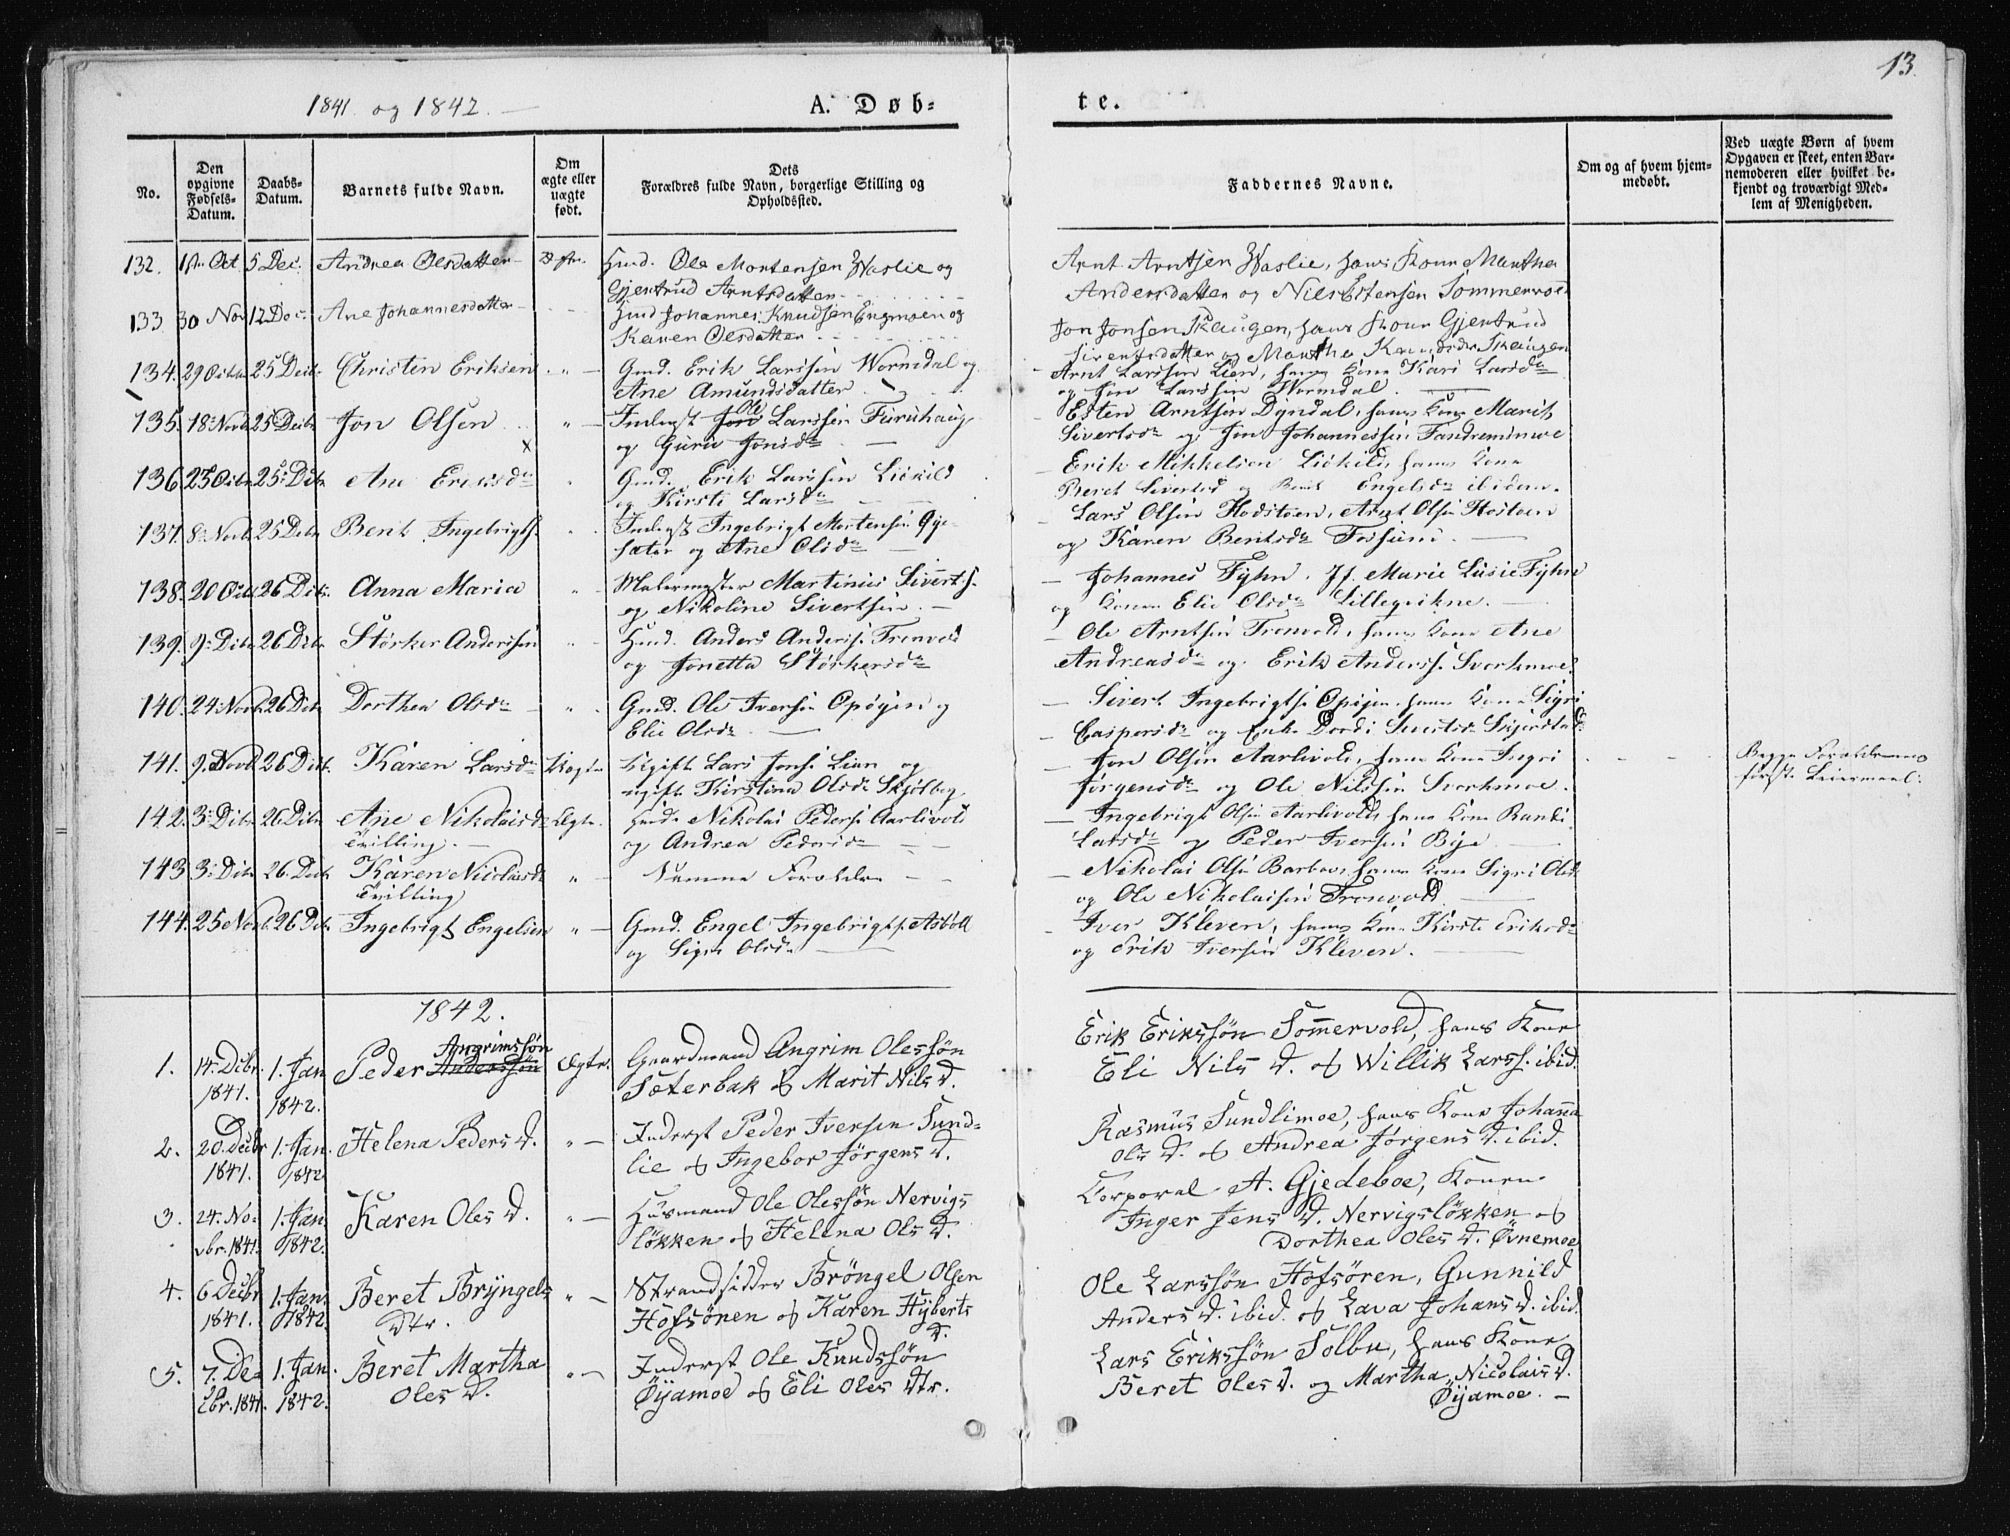 1841 og 1842.
A. Døb-
te.
13.
No.
Den opgivne Fødsels-Datum.
Daabs-Datum.
Barnets fulde Navn.
Om ægte eller uægte født.
Dets Forældres fulde Navn, borgerlige Stilling og Opholdssted.
Faddernes Navne.
Om og af hvem hjem-meddøbt.
Ved uægte Børn af hvem Opgaven er skeet, enten Bar-nemoderen eller hvilket be-kjendt og troværdigt Med-lem af Menigheden.
132. 5 Dec. Andrea Olsdatter Hmd. Ole Mortensen Haslie og
Gjertrud Arntsdatter
Arnt Arntsen Haslie, hans Kone Marthe
Andersdatter og Nils Estensen Sommervold
133 30 Nov 12 Dec. Ane Johannesdatter Hmd Johannes Knudsen Engmoen og
Karen Olsdatter
Jon Jonsen Skaugen, hans Kone Gjertrud
Sivertsdatter og Marthe Knudsdr Skaugen
134. 25 Decbr Christen Eriksen " — Gmd. Erik Larssen Wormdal og
Ane Amundsdatter
Arnt Larssen Lien, hans Kone Kari Larsdr
og Jon Larssen Wormdal.
135. 18 Novbr 25 Decbr Jon Olsen " — Inderst Ole Larssen Furuhaug
og Guru Jonsdr
Esten Arntsen Dyndal, hans Kone Marit
Sivertsdr og Jon Johannessen Fandremsmoe
136 25 Dcbr Ane Eriksdr " Gmd. Erik Larssen Liökild
og Kirsti Larsdr
Erik Mikkelsen Liökild, hans Kone
Beret Sivertsd og Engelsdr ibidem.
137. 8 Novbr 25 Dcbr Bent Ingebrigts. Inderst Ingebrigt Mortensen Öye-
sæter og Ane Olsdr
Lars Olsen Hodstoen, Arnt Olsen Hostoen
og Karen Bentsdr
138. 26 Dcbr. Anna Maria " Malermester Martinus Siverts.
og Nikoline Sivertsen.
Johannes Fyhn. Jf. Marie Lusie Fyhn
og Konen Elie Olsdr Lillegvikne.
139. 9 Dcbr 26 Dcbr Störker Anderssen " Hmd. Anders Anderss. Tronvold
og Jonetta Störkersdr
Ole Arntsen Tronvold, hans Kone Ane
Andreasdr og Erik Anderss. Svorkmoe.
140. 24 Novb. 26 Dcbr Dorthea Olsdr " Gmd. Ole Iversen Opöyen og
Elie Olsdr
Sivert Ingebrigts. Opöyen, hans Kone Sigri
Caspersdr og Enke Dordi
141. 9 Novb 26 Dcbr. Karen Larsdr Uægte Ugift Lars Jons. Lien og
ugift Kirstine Olsdr Skjölberg
Jon Olsen Aarlivold, hans Kone Ingri
Jörgensdr og Ole Nilssen Svorkmoe.
Begge Forældrenes
første Leiermaal.
142. 3 Dcbr 26 Dcbr Ane Nikolaisdr Ægte. Hmd. Nikolai Peders. Aarlivold
Tvilling. — og Andrea Pedersdr
Ingebrigt Olsen Aarlivold, hans Kone Randi
Larsdr og Peder Iversen Bye
143 3 Dcbr 26. Decb. Karen Nicolaisd. " — Samme Forældre
Tvilling
Nikolai Olsen hans Kone Sigri Olsdr
og Ole Nikolaisen Tronvold
144. 25 Novb. 26 Dcbr Ingebrigt Engelsen " — Gmd. Engel Ingebrigts. Asböll
og Sigri Olsdr
Iver Kleven, hans Kone Kirsti Eriksdr
og Erik Iversen Kleven.
1842.
1. 14. Decbr. 1. Jan Peder Angrimssøn Anderssøn Ægte. Gaardmand Angrim Olessøn
1841. 1842. Sæterbak & Marit Nils D.
Erik Erikssøn Sommervold, hans Kone
Eli Nils D. & Willik Larss. ibid.
2. 20. Decbr 1. Jan. Helena Peders D. " — Inderst Peder Iversen Sund-
1841. 1842 lie & Ingebor Jörgens D.
Rasmus Sundlimoe, hans Kone Johanna
Ols D. & Andrea Jörgens D. ibid.
3. 24. No- 1. Jan. Karen Oles D. " — Husmand Ole Olessøn Nervigs
vbr. 1841. 1842. løkken & Helena Ols D.
Corporal A. Gjedeboe, Konen
Inger Jens D. Nervigsløkken &
Dorthea Oles D. Øvnemoe
4. 6 Decbr 1. Jan. Beret Bryngels " — Strandsidder Brøngel Olsen
1841. 1842. Dtr. Hofsönen & Karen Hyberts
D.
Ole Larssøn Hofsören, Gunnild
Anders D. ibid. & Lava Johans D. ibid.
5. 7. De- 1. Jan. Beret Martha " — Inderst Ole Knudssøn
cbr. 1841. 1842. Oles D. Øyamoe & Eli Oles Dtr.
Lars Erikssøn Solbu, hans Kone
Beret Oles D. og Martha Nicolais D.
Øyamoe. —